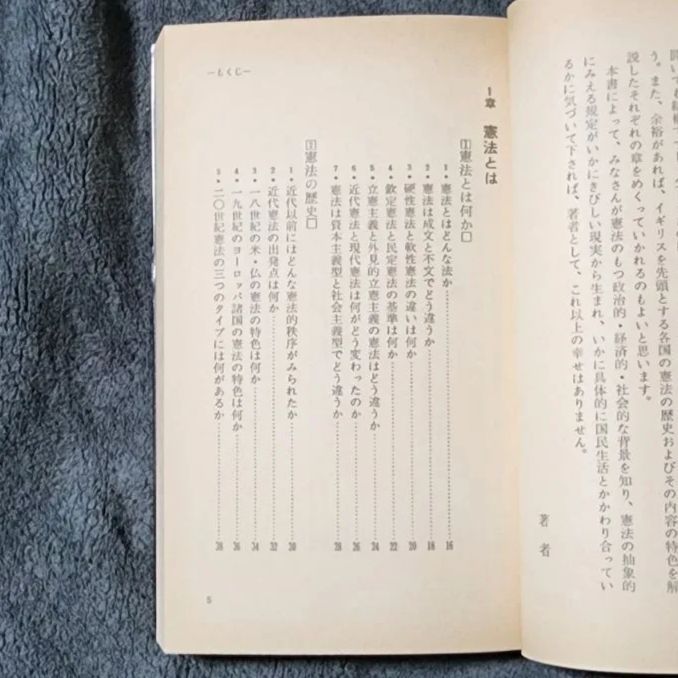 う。また、余裕があれば、イギリスを先頭とする各国の憲法の歴史およびその内容の特色を解
説したそれぞれの章をめくっていかれるのもよいと思います。
本書によって、みなさんが憲法のもつ政治的・経済的・社会的な背景を知り、憲法の抽象的
にみえる規定がいかにきびしい現実から生まれ、いかに具体的に国民生活とかかわり合ってい
るかに気づいて下されば、著者として、これ以上の幸せはありません。
著者
―もくじ―
1章 憲法とは
①憲法とは何か□
1・憲法とはどんな法か……16
2・憲法は成文と不文でどう違うか……18
3・硬性憲法と軟性憲法の違いは何か……20
4・欽定憲法と民定憲法の基準は何か……22
5・立憲主義と外見的立憲主義の憲法はどう違うか……24
6・近代憲法と現代憲法は何がどう変わったのか……26
7・憲法は資本主義型と社会主義型でどう違うか……28
②憲法の歴史□
1・近代以前にはどんな憲法的秩序がみられたか……30
2・近代憲法の出発点は何か……32
3・一八世紀の米・仏の憲法の特色は何か……34
4・一九世紀のヨーロッパ諸国の憲法の特色は何か……36
5・二〇世紀憲法の三つのタイプには何があるか……38
5